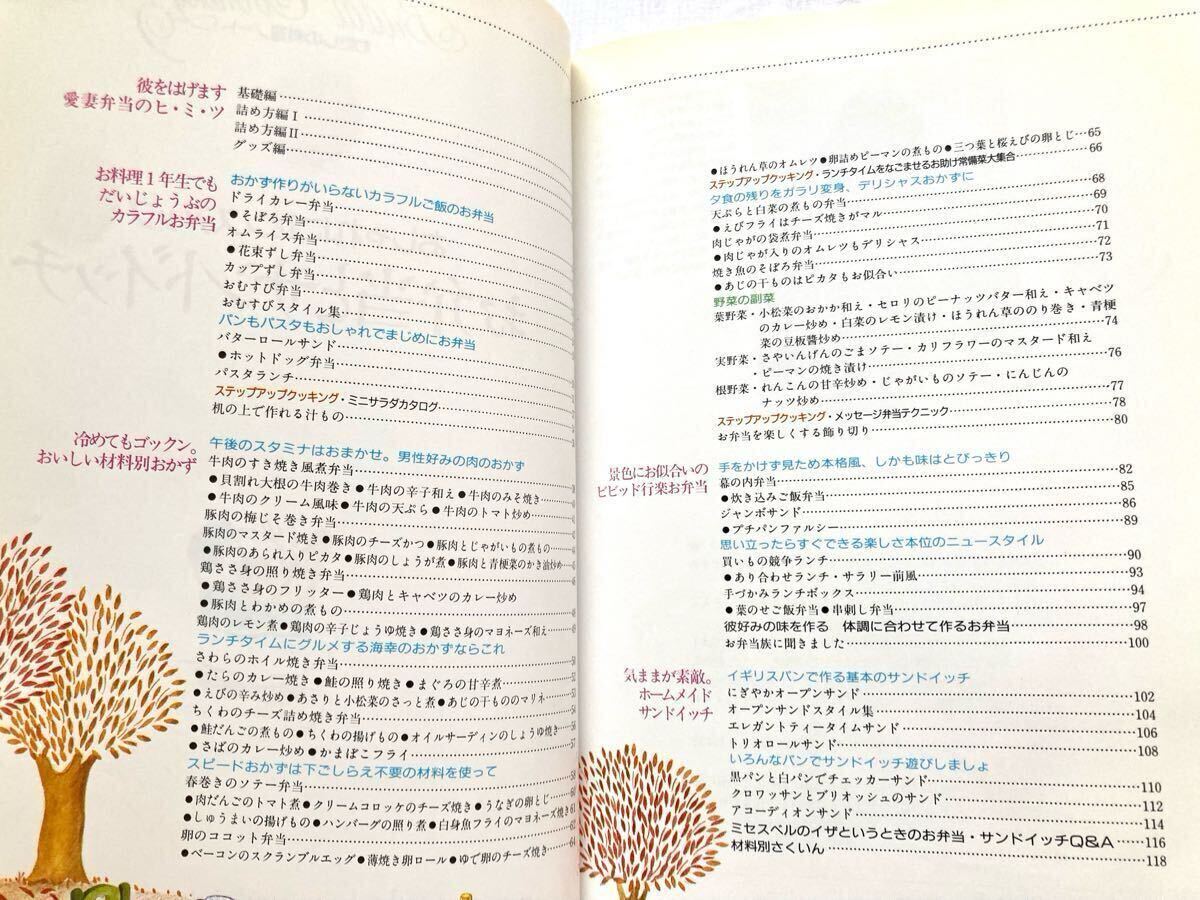 彼をはげます
愛妻弁当のヒ・ミ・ツ
基礎編
詰め方編Ⅰ
詰め方編Ⅱ
グッズ編
お料理1年生でも
だいじょうぶの
カラフルお弁当
おかず作りがいらないカラフルご飯のお弁当
ドライカレー弁当
●そぼろ弁当
オムライス弁当
●花束ずし弁当
カップずし弁当
おむすび弁当
おむすびスタイル集
パンもパスタもおしゃれでまじめにお弁当
バターロールサンド
●ホットドッグ弁当
パスタランチ
ステップアップクッキング・ミニサラダカタログ
机の上で作れる汁もの
冷めてもゴックン。
おいしい材料別おかず
午後のスタミナはおまかせ。男性好みの肉のおかず
牛肉のすき焼き風煮弁当
●貝割れ大根の牛肉巻き●牛肉の辛子和え●牛肉のみそ焼き
●牛肉のクリーム風味●牛肉の天ぷら●牛肉のトマト炒め
豚肉の梅じそ巻き弁当
豚肉のマスタード焼き●豚肉のチーズかつ●豚肉とじゃがいもの煮もの
●豚肉のあられ入りピカタ●豚肉のしょうが煮●豚肉と青梗菜のかき油炒め
鶏ささ身の照り焼き弁当
●鶏ささ身のフリッター●鶏肉とキャベツのカレー炒め
●豚肉とわかめの煮もの 48
鶏肉のレモン煮●鶏肉の辛子じょうゆ焼き●鶏ささ身のマヨネーズ和え 49
ランチタイムにグルメする海幸のおかずならこれ
さわらのホイル焼き弁当 50
●たらのカレー焼き●鮭の照り焼き●まぐろの甘辛煮 52
●えびの辛み炒め●あさりと小松菜のさっと煮●あじの干もののマリネ
ちくわのチーズ詰め焼き弁当 54
●鮭だんごの煮もの●ちくわの揚げもの●オイルサーディンのしょうゆ焼き
●さばのカレー炒め●かまぼこフライ 57
スピードおかずは下ごしらえ不要の材料を使って
春巻きのソテー弁当
●肉だんごのトマト煮●クリームコロッケのチーズ焼き●うなぎの卵とじ 60
●しゅうまいの揚げもの●ハンバーグの照り煮●白身魚フライのマヨネーズ焼き 61
卵のココット弁当 62
●ベーコンのスクランブルエッグ●薄焼き卵ロール●ゆで卵のチーズ焼き 64
●ほうれん草のオムレツ●卵詰めピーマンの煮もの●三つ葉と桜えびの卵とじ 65
ステップアップクッキング・ランチタイムをなごませるお助け常備菜大集合 66
夕食の残りをガラリ変身、デリシャスおかずに
天ぷらと白菜の煮もの弁当 68
●えびフライはチーズ焼きがマル 69
肉じゃがの袋煮弁当 70
●肉じゃが入りのオムレツもデリシャス 71
焼き魚のそぼろ弁当 72
●あじの干ものはピカタもお似合い 73
野菜の副菜
葉野菜・小松菜のおかか和え・セロリのピーナッツバター和え・キャベツ
のカレー炒め・白菜のレモン漬け・ほうれん草ののり巻き・青梗
菜の豆板醤炒め 74
実野菜・さやいんげんのごまソテー・カリフラワーのマスタード和え
・ピーマンの焼き漬け 76
根野菜・れんこんの甘辛炒め・じゃがいものソテー・にんじんの
ナッツ炒め 77
ステップアップクッキング・メッセージ弁当テクニック 78
お弁当を楽しくする飾り切り 80
景色にお似合いの
ビビッド行楽お弁当
手をかけず見ため本格風、しかも味はとびっきり
幕の内弁当 82
●炊き込みご飯弁当 85
ジャンボサンド 86
●プチパンファルシー 89
思い立ったらすぐできる楽しさ本位のニュースタイル
買いもの競争ランチ 90
●あり合わせランチ・サラリー前風 93
手づかみランチボックス 94
●葉のせご飯弁当●串刺し弁当 97
彼好みの味を作る 体調に合わせて作るお弁当 98
お弁当族に聞きました 100
気ままが素敵。
ホームメイド
サンドイッチ
イギリスパンで作る基本のサンドイッチ
にぎやかオープンサンド 102
オープンサンドスタイル集 104
エレガントティータイムサンド 106
トリオロールサンド 108
いろんなパンでサンドイッチ遊びしましょ
黒パンと白パンでチェッカーサンド 110
クロワッサンとブリオッシュのサンド 112
アコーディオンサンド 114
ミセスベルのイザというときのお弁当・サンドイッチQ&A 116
材料別さくいん 118